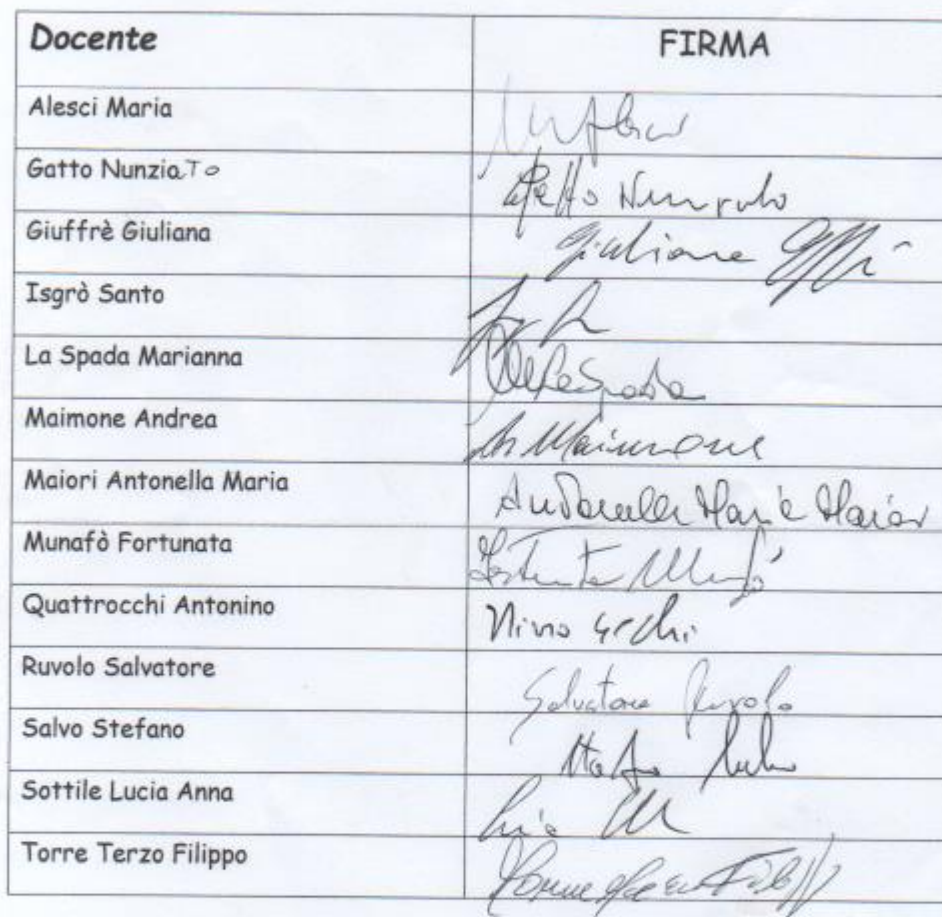 Docente FIRMA
Alesci Maria
Gatto Nunziato Gatto Nunziato
Giuffrè Giuliana Giuliana
Isgrò Santo
La Spada Marianna La Spada
Maimone Andrea Maimone
Maiori Antonella Maria Antonella Maria Maiori
Munafò Fortunata Fortunata
Quattrocchi Antonino Nino 4cchi
Ruvolo Salvatore Salvatore Ruvolo
Salvo Stefano
Sottile Lucia Anna
Torre Terzo Filippo